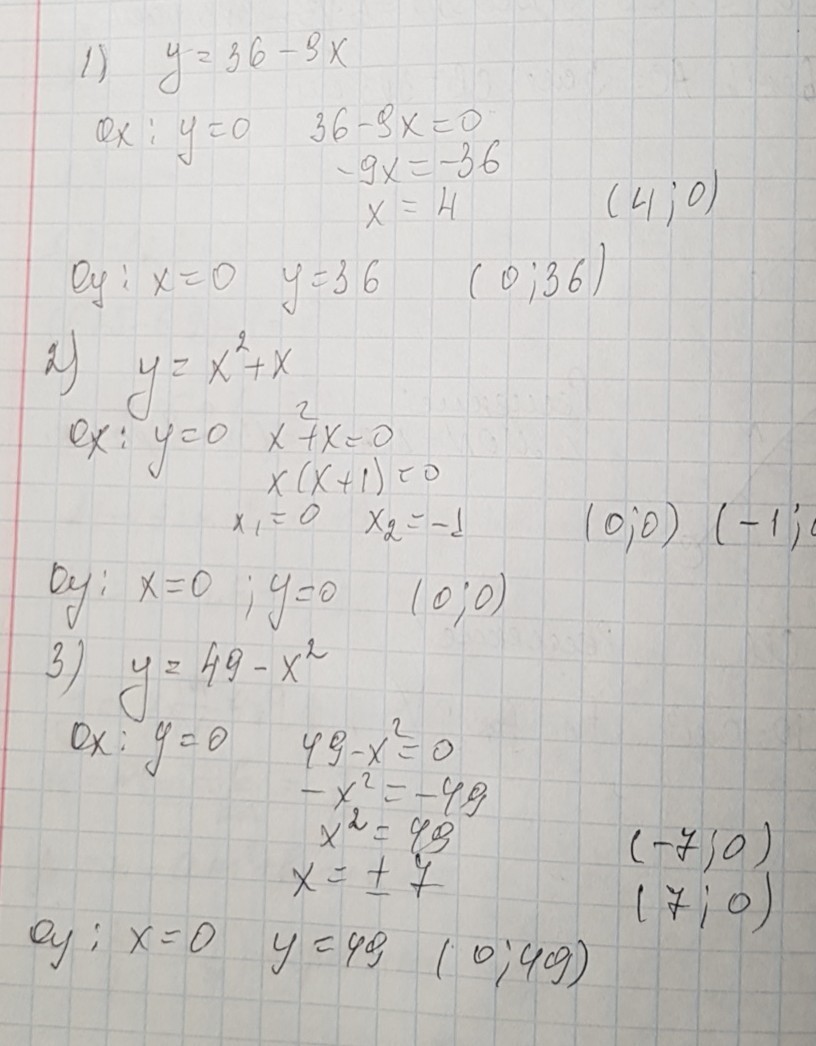 1) y = 36 - 9x
Ox: y=0 36-9x=0
-9x=-36
x = 4 (4;0)
Oy: x=0 y=36 (0;36)
2) y = x²+x
Ox: y=0 x²+x=0
x(x+1)=0
x₁=0 x₂=-1 (0;0) (-1;0
Oy: x=0 ; y=0 (0;0)
3) y = 49 - x²
Ox: y=0 49-x²=0
-x²=-49
x²=49 (-7;0)
x=±7 (7;0)
Oy: x=0 y=49 (0;49)